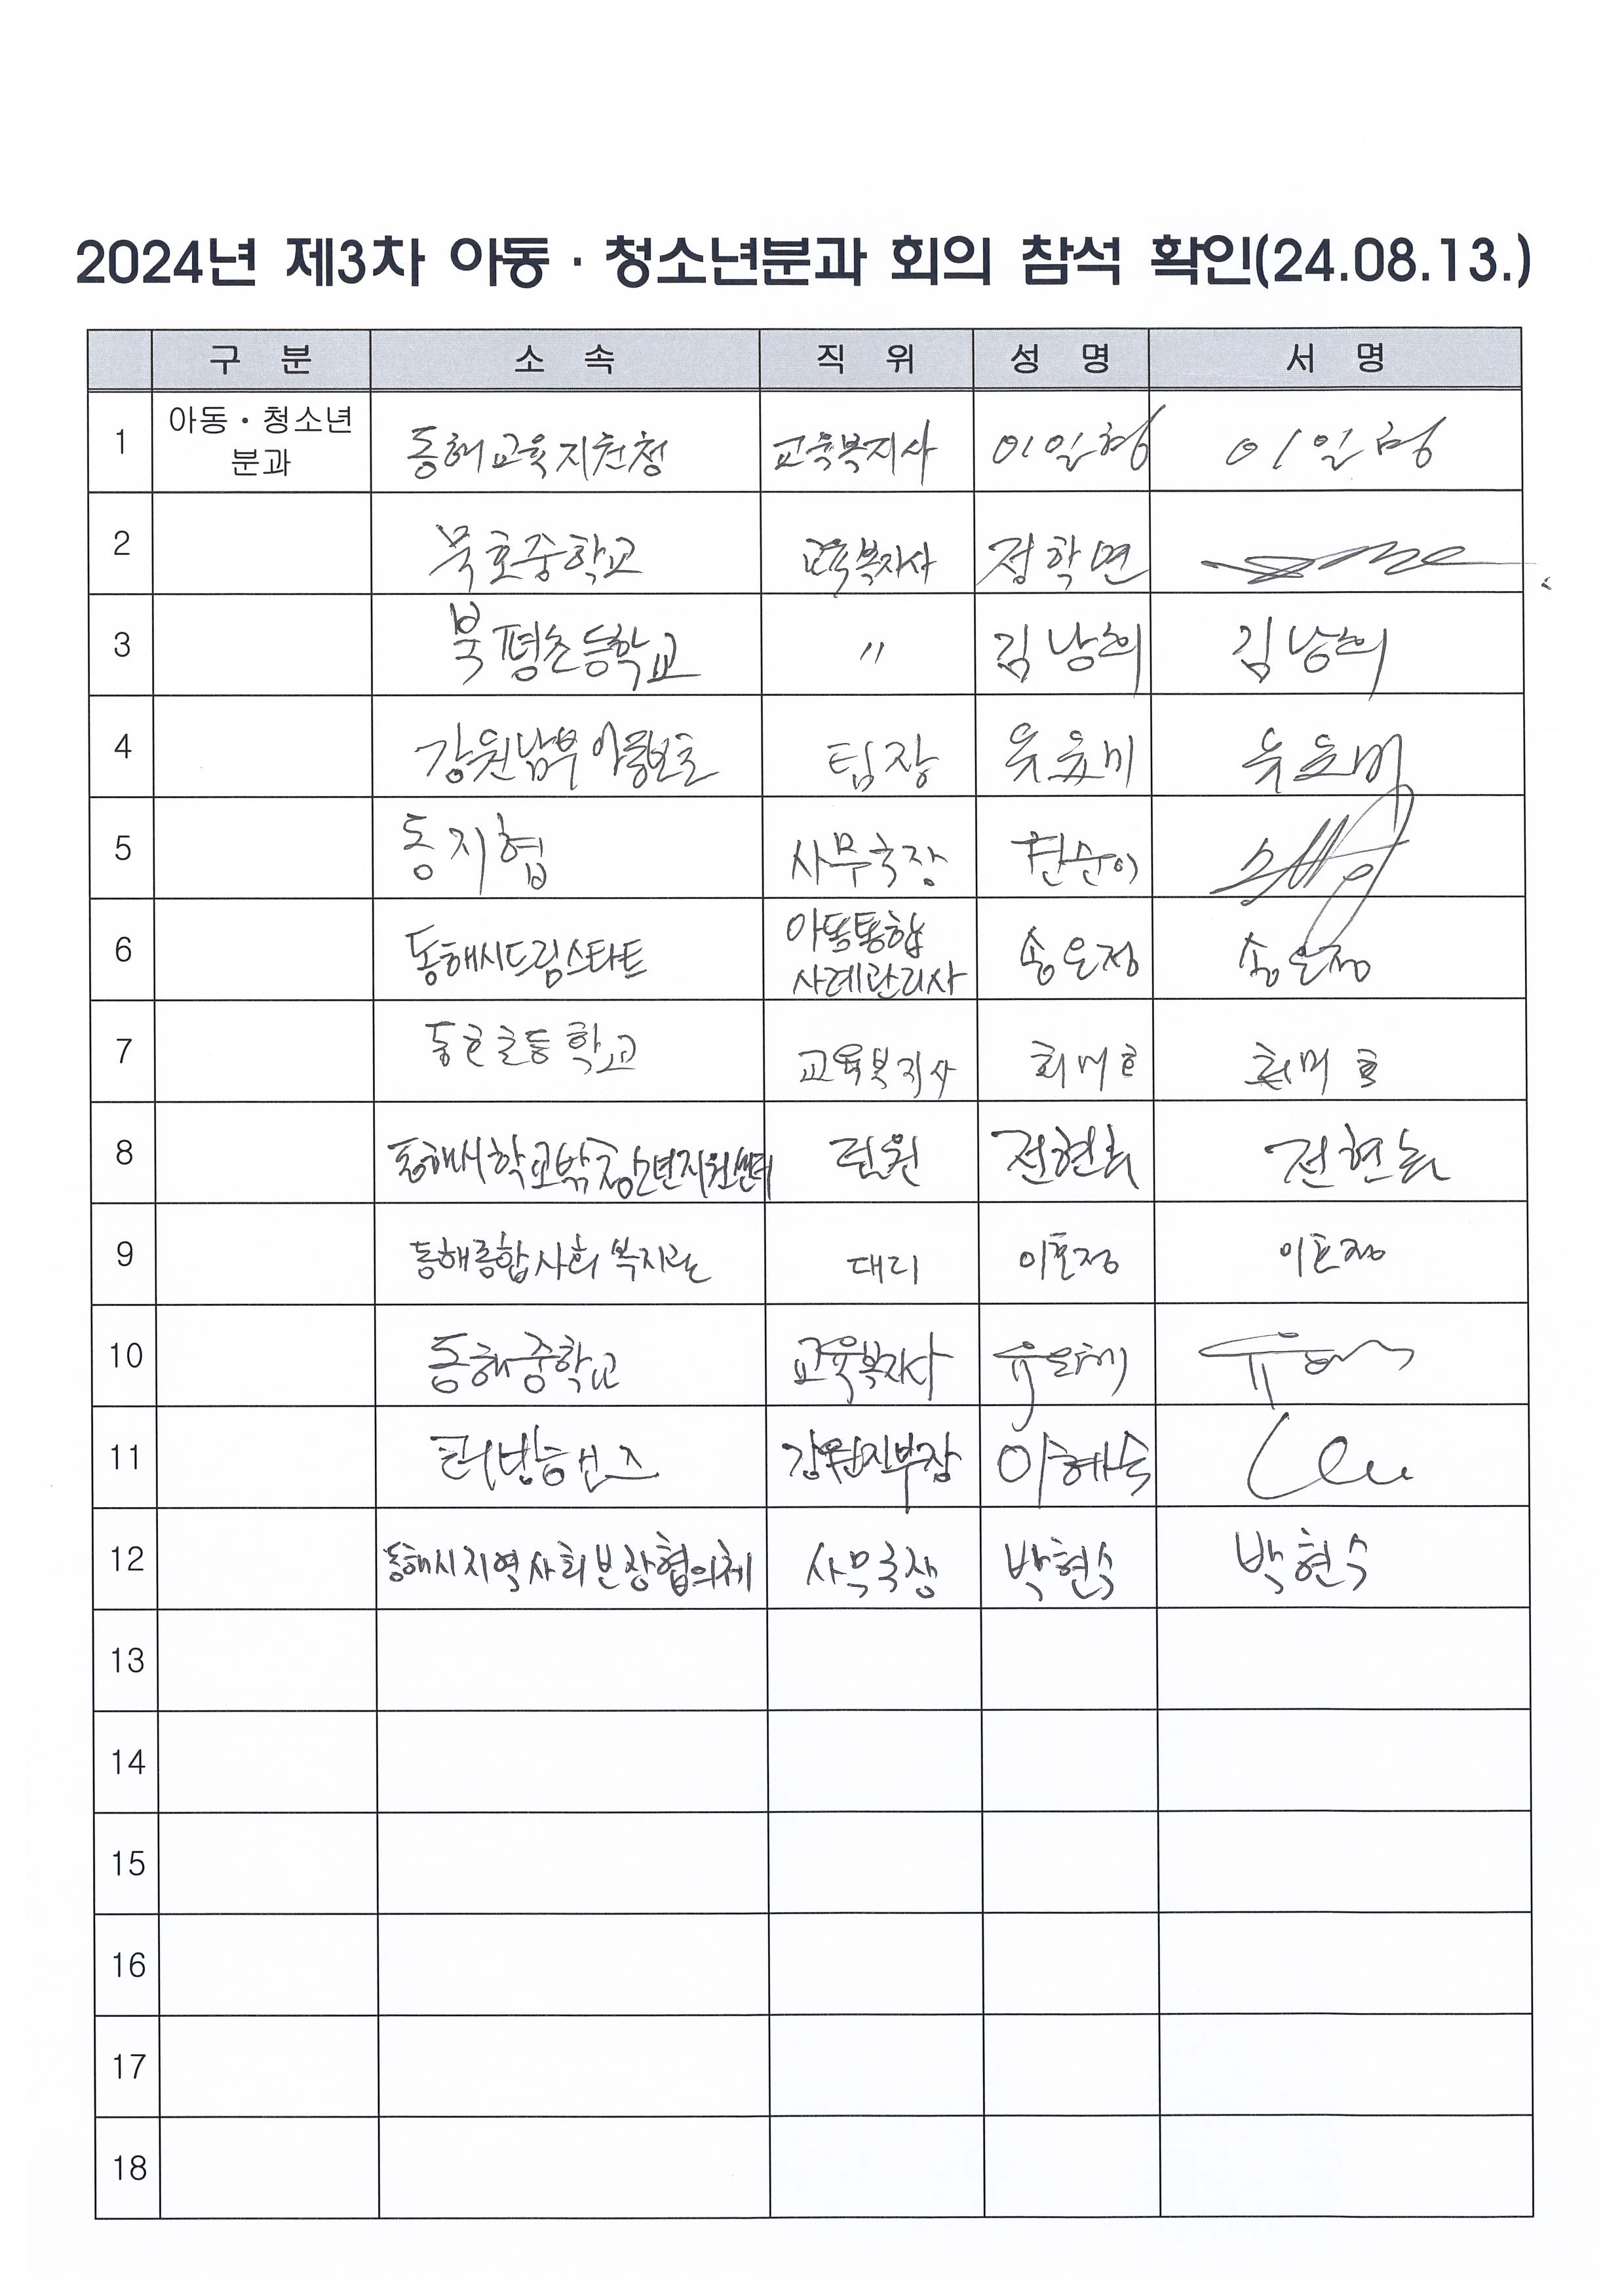 2024년 제3차 아동·청소년분과 회의 참석 확인(24.08.13.)
구 분 소 속 직 위 성 명 서 명
1 아동·청소년 분과 동해교육지원청 교육복지사 이일형 이일형
2 묵호중학교 교육복지사 정학면
3 북평초등학교 〃 김낭희 김낭희
4 강원남부아동보호 팀장
5 동지협 사무국장
6 동해시드림스타트 아동통합 사례관리사 송은정 송은정
7 초등학교 교육복지사
8 동해시학교밖청소년지원센터 팀원
9 동해종합사회복지관 대리
10 동해중학교 교육복지사
11 강원지부장 이혜숙
12 동해시지역사회보장협의체 사무국장 박현수 박현수
13
14
15
16
17
18